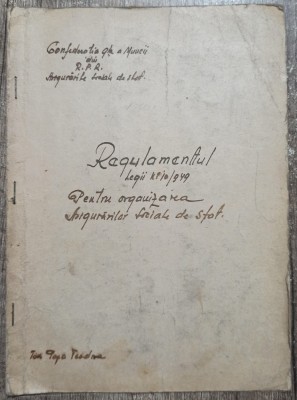 Confederatia Gle a Muncii
din
R.P.R.
Asigurările Sociale de Stat.
Regulamentul
Legii Nº10/949
Pentru organizarea
Asigurărilor Sociale de Stat.